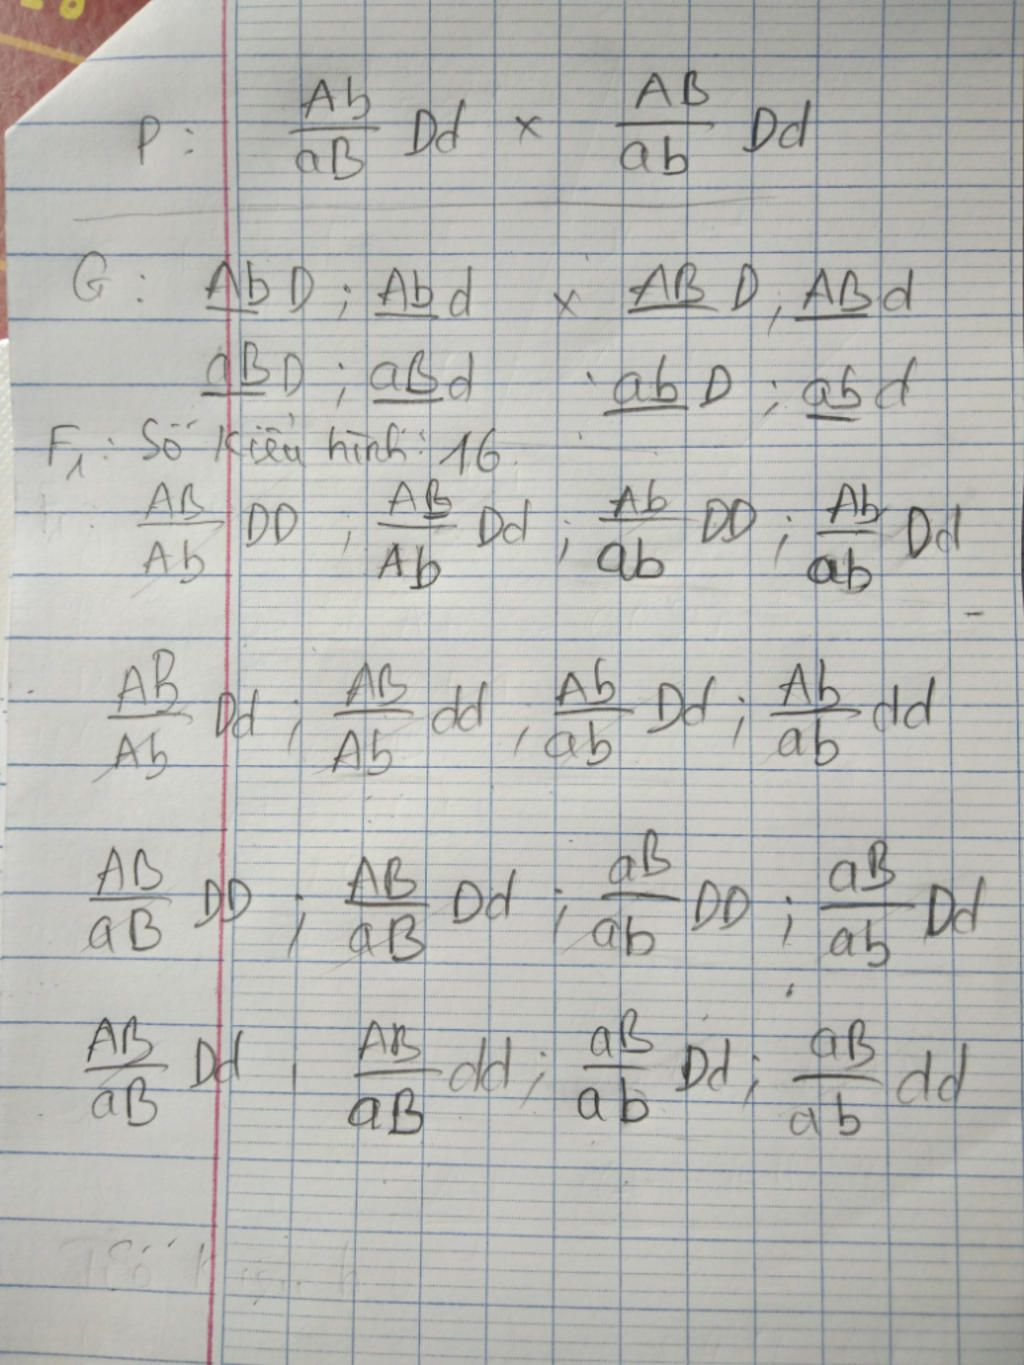 P: Ab/aB Dd × AB/ab Dd
G: Ab D; Ab d × AB D; AB d
aB D; aB d ab D; ab d
F1: Số kiểu hình: 16
AB/Ab DD; AB/Ab Dd; Ab/ab DD; Ab/ab Dd
AB/Ab Dd; AB/Ab dd; Ab/ab Dd; Ab/ab dd
AB/aB DD; AB/aB Dd; aB/ab DD; aB/ab Dd
AB/aB Dd; AB/aB dd; aB/ab Dd; aB/ab dd